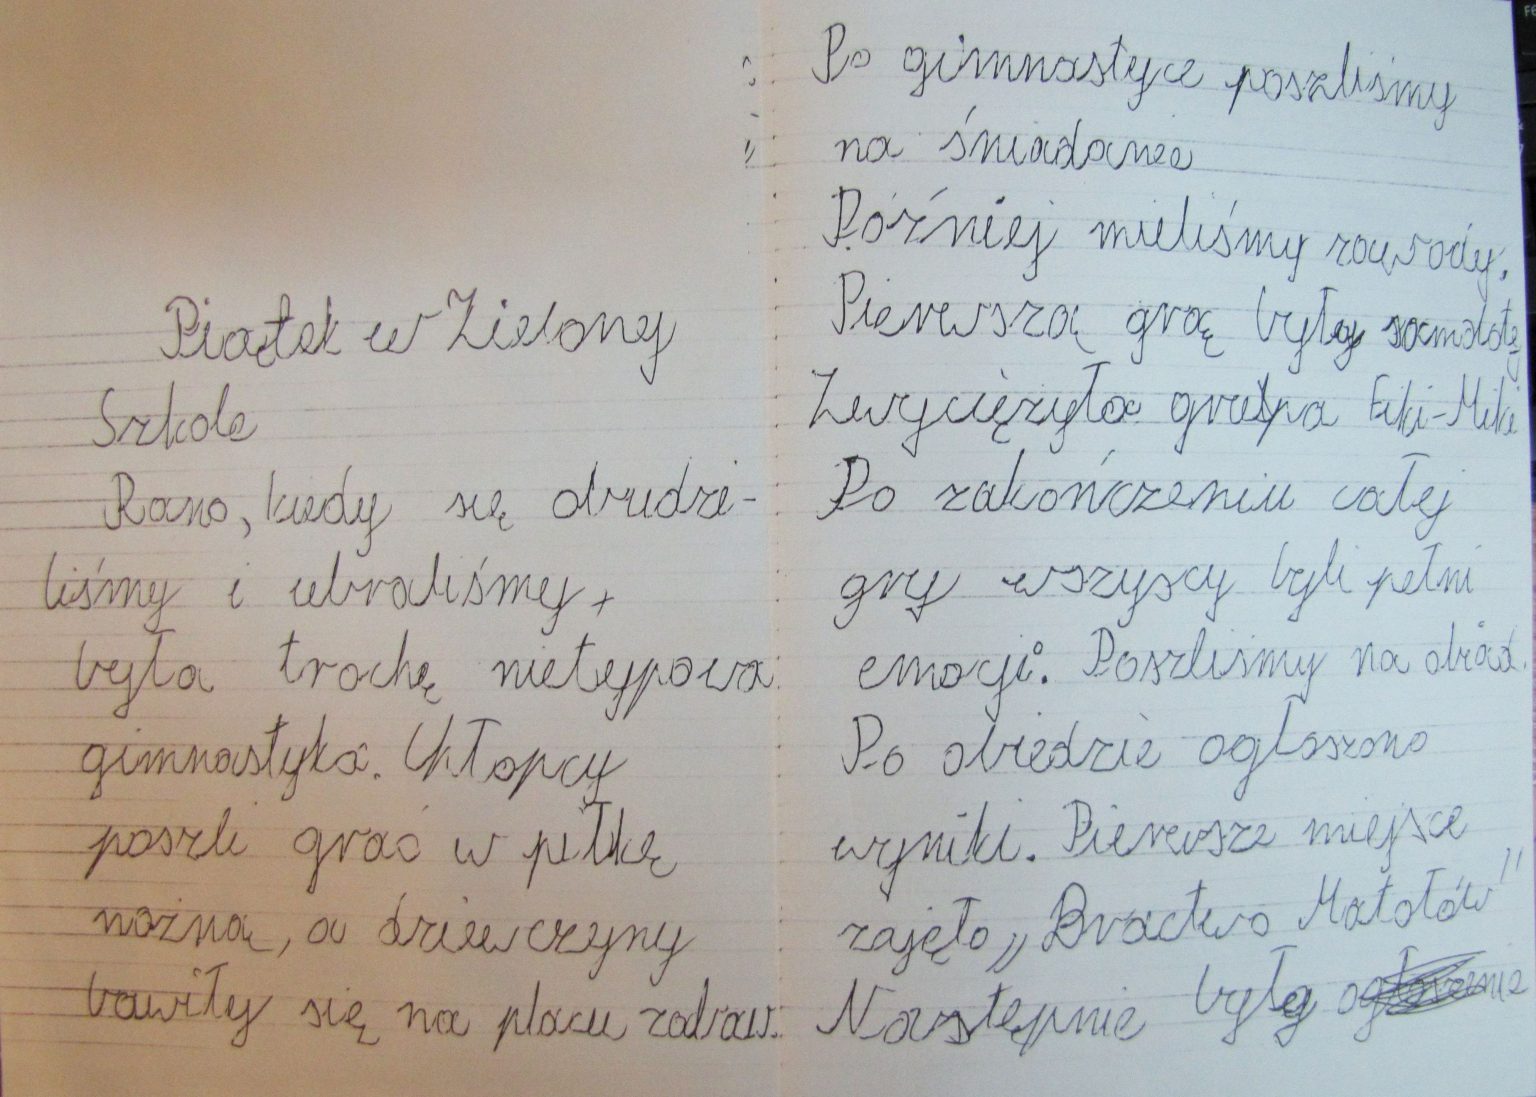 Piątek w Zielony
Szkole
Rano, kiedy się obudzi-
liśmy i ubraliśmy,
była trochę nietypowa
gimnastyka. Chłopcy
poszli grać w piłkę
nożną, a dziewczyny
bawiły się na placu zabaw.
Po gimnastyce poszliśmy
na śniadanee
Póżniej mieliśmy zawody.
Pierwszą grą były samoloty
Zwyciężyła grupa Eiki-Miki
Po zakończeniu całej
gry wszyscy byli pełni
emocji. Poszliśmy na obiad.
Po obiedzie ogłoszono
wyniki. Pierwsze miejsce
zajęło „Bractwo Matołów"
Następnie były